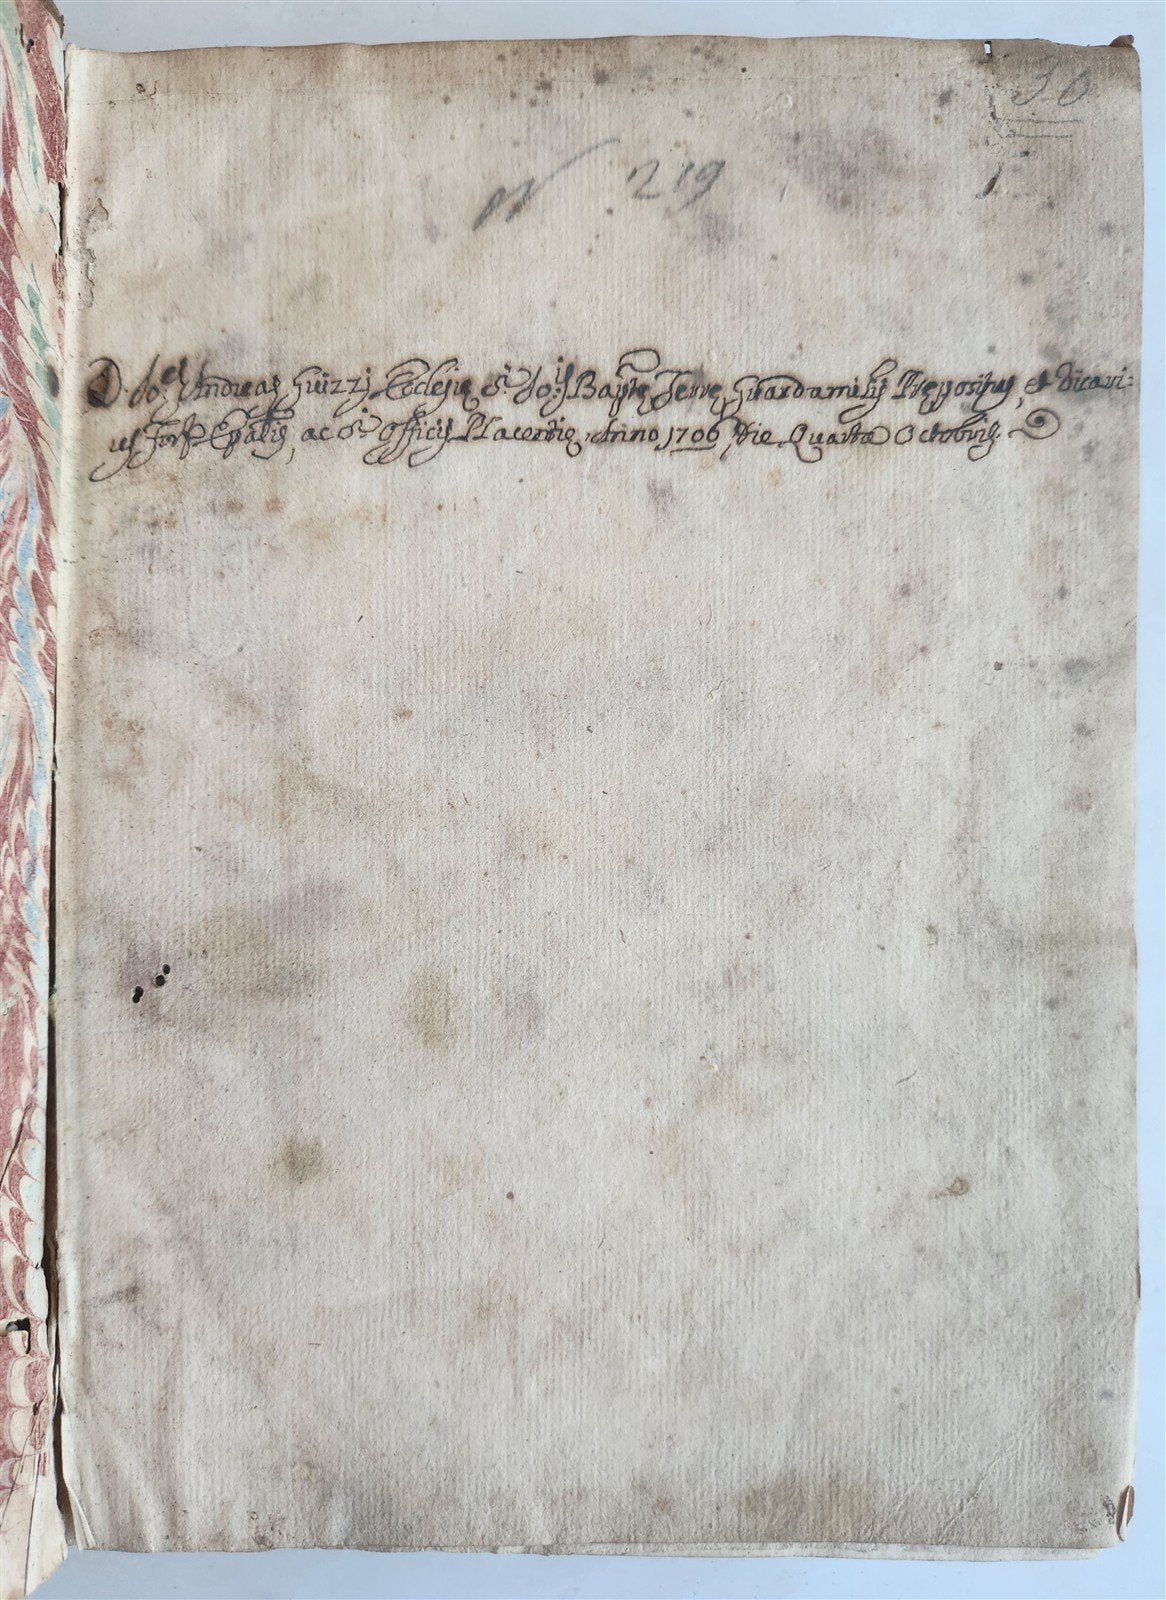 30
N 219
D. Jo:es Andreas Guizzj Ecclesię S.ti Jo:is Bap.tę Terrę Guardamiglij Prępositus, et Vicari:
us For.s Ep̃alis, ac S.ti Officij Placentię, Anno 1706, die Quarta Octobris.